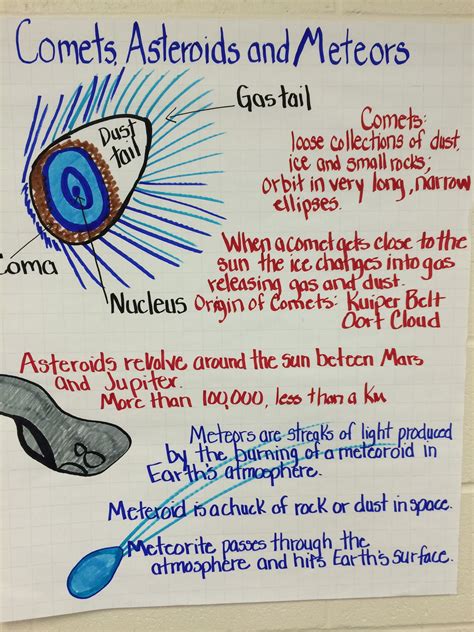 Comets, Asteroids and Meteors
Gas tail
Dust
tail
Coma
Nucleus
Comets:
loose collections of dust,
ice and small rocks;
orbit in very long, narrow
ellipses.
When a comet gets close to the
sun the ice changes into gas
releasing gas and dust.
Origin of Comets: Kuiper Belt
Oort Cloud
Asteroids revolve around the sun beteen Mars
and Jupiter.
More than 100,000, less than a Km
Meteors are streaks of light produced
by the burning of a meteoroid in
Earth's atmosphere.
Meteroid is a chuck of rock or dust in space.
Meteorite passes through the
atmosphere and hits Earth's surface.